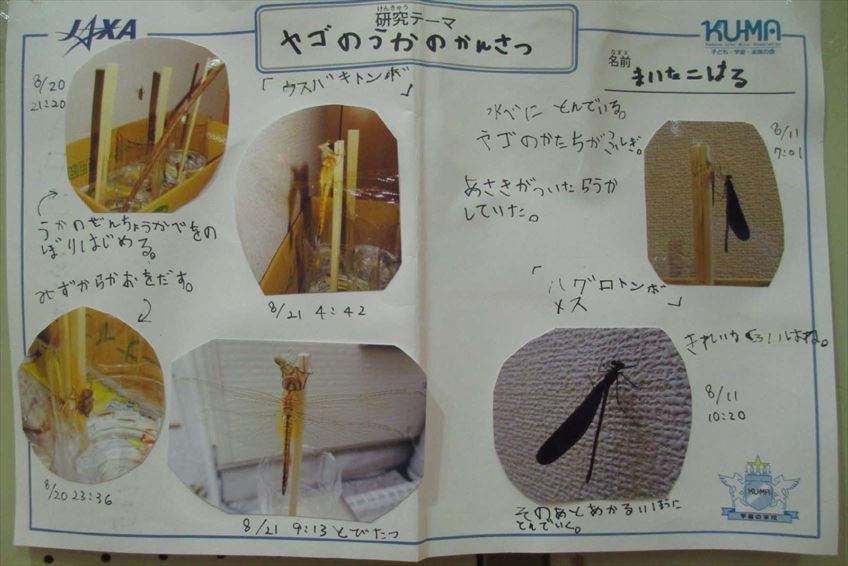 JAXA
けんきゅう
研究テーマ
ヤゴのうかのかんさつ
KU-MA
子ども・宇宙・未来の会
なまえ
名前
8/20
21:20
「ウスバキトンボ」
うかのぜんちょうかべをの
ぼりはじめる。
みずからかおをだす。
8/21 4:42
8/20 23:36
8/21 9:13 とびたつ
水べに とんでいる。
ヤゴのかたちがふしぎ。
あさきがついたらうか
していた。
8/11
7:01
「ハグロトンボ
メス」
きれいなくろいはね。
8/11
10:20
そのあとあかるいほうに
とんでいく。
KU-MA
宇宙の学校